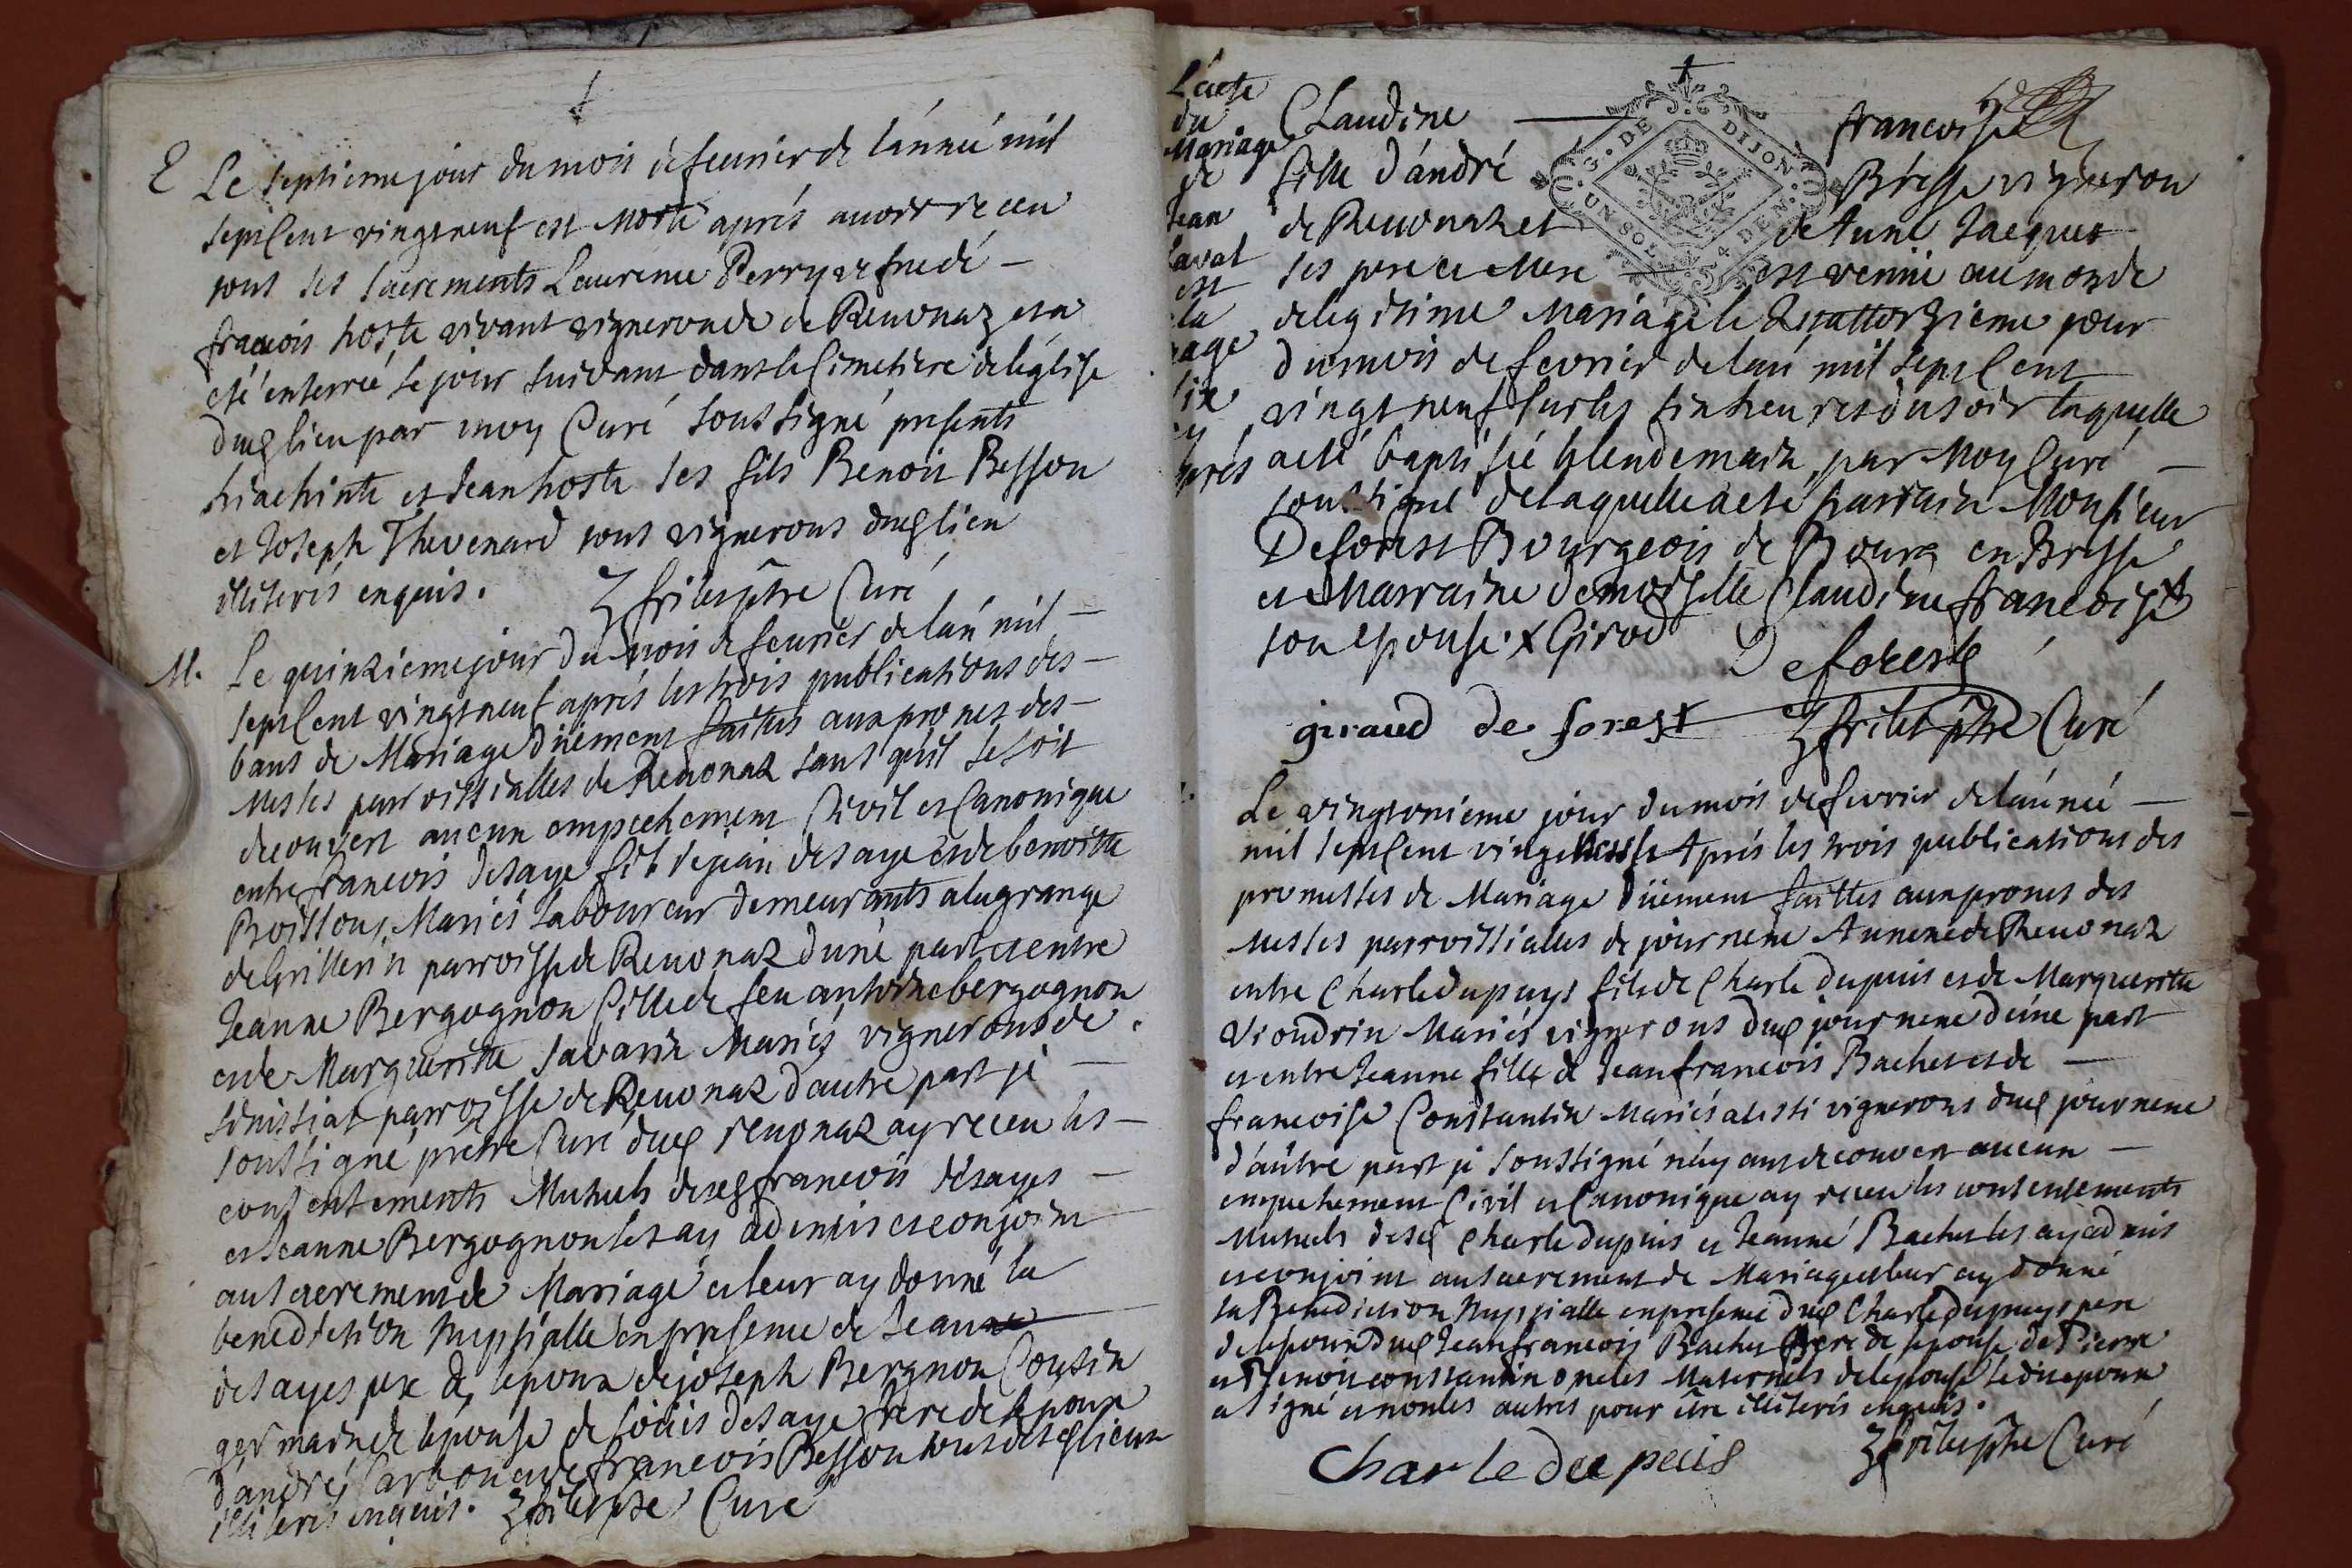 E Le septieme jour du mois de feurier de lánnée mil
sept Cent vingt neuf est Morte aprés auoir receu
tous ses sacrements Laurence Perryer feu de
francois hoste vivant vigneron de Reuonaz et a
été enterrée le jour suivant dans le Cimetiere de léglise
dud lieu par moy Curé soussigné presents
hiachinte et Jean hoste ses fils Benoit Besson
et Joseph Thevenard tous vignerons dud lieu
illiterés enquis. frilet ptre Curé
M. Le quinzieme jour du mois de feurier de lán mil
sept Cent vingt neuf aprés les trois publications des
bans de Mariage düement faittes aux prones des
Messes parroissialles de Reuonaz sans qu'il se soit
decouvert aucun empechement Civil et Canonique
entre francois desaye fils de jean desaye et de benoitte
Boissons Mariés Laboureur demeurants a la grange
de Grillerin parroisse de Reuonaz d'une part et entre
Jeanne Bergognon fille de feu antoine bergognon
et de Margueritte Savarin Mariés vignerons de
senissiat parroisse de Reuonaz d'autre part je
soussigné prêtre Curé dud reuonaz ay receu les
consentements Mutuels desd francois désayes
et Jeanne Bergognon les ay admis et conjoint
au sacrement de Mariage et leur ay donné la
benediction Nuptialle en presence de Jean
desayes pere de lepoux de joseph Bergnon Cousin
germain de lépouse de Loüis desaye frere de lépoux
d'andré Carbon et de francois Besson tous desd lieux
illiterés enquis. frilet ptre Curé
L'acte
du
Mariage
de
Jean
Laval
est
la
page
cy
aprés
G. DE DIJON
UN SOL 4 DEN.
Claudine francoise
fille d'ándré Bresse vigneron
de Reuonaz et de Anne Jacquet
ses pere et Mere est venüe au monde
de legitime Mariage le Quattorzieme jour
du mois de fevrier de lan mil sept Cent
vingt neuf sur les six heures du soir laquelle
a eté baptisée le lendemain par Moy Curé
soussigné de laquelle a eté parrain Monsieur
Deforest Bourgeois de Bourg en Bresse
et Marraine demoiselle Claudine francoise
son epouse. x Girod
Deforest
giraud de forest frilet ptre Curé
Le vingt onieme jour du mois de fevrier de lánnée
mil sept Cent vingt neuf Aprés les trois publications des
promesses de Mariage düement faittes aux prones des
Messes parroissialles de journene Annexe de Reuonaz
entre Charle dupuys fils de Charle dupuis et de Margueritte
Vioudrin Mariés vignerons dud journene d'une part
et entre Jeanne fille de Jean francois Bachet et de
francoise Constantin Mariés aussi vignerons dud journene
d'aûtre part je soussigné n'ay ant decouvert aucun
empechement Civil et Canonique ay receu les consentements
Mutuels desd Charle dupuis et Jeanne Bachet les ay admis
et conjoint au sacrement de Mariage et leur ay donné
la Benediction Nuptialle en presence dud Charle dupuys pere
de lepoux dud Jean francois Bachet pere de lepouse de Pierre
et Benoit constantin oncles Maternels de lepouse ledit epoux
a signé et non les autres pour être illiterés enquis.
Charle du peuis frilet ptre Curé